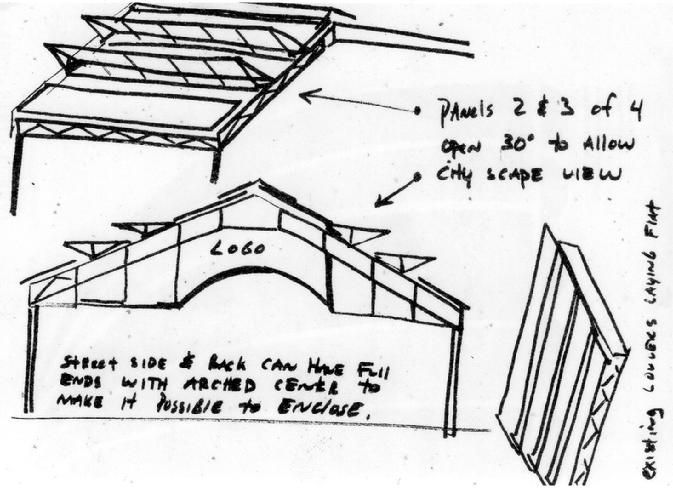 • PANELS 2 & 3 of 4
open 30° to Allow
• City scape view
LOGO
STREET SIDE & BACK CAN HAVE FULL
ENDS WITH ARCHED CENTER TO
MAKE IT POSSIBLE TO ENCLOSE.
existing LOUVERS LAYING FLAT